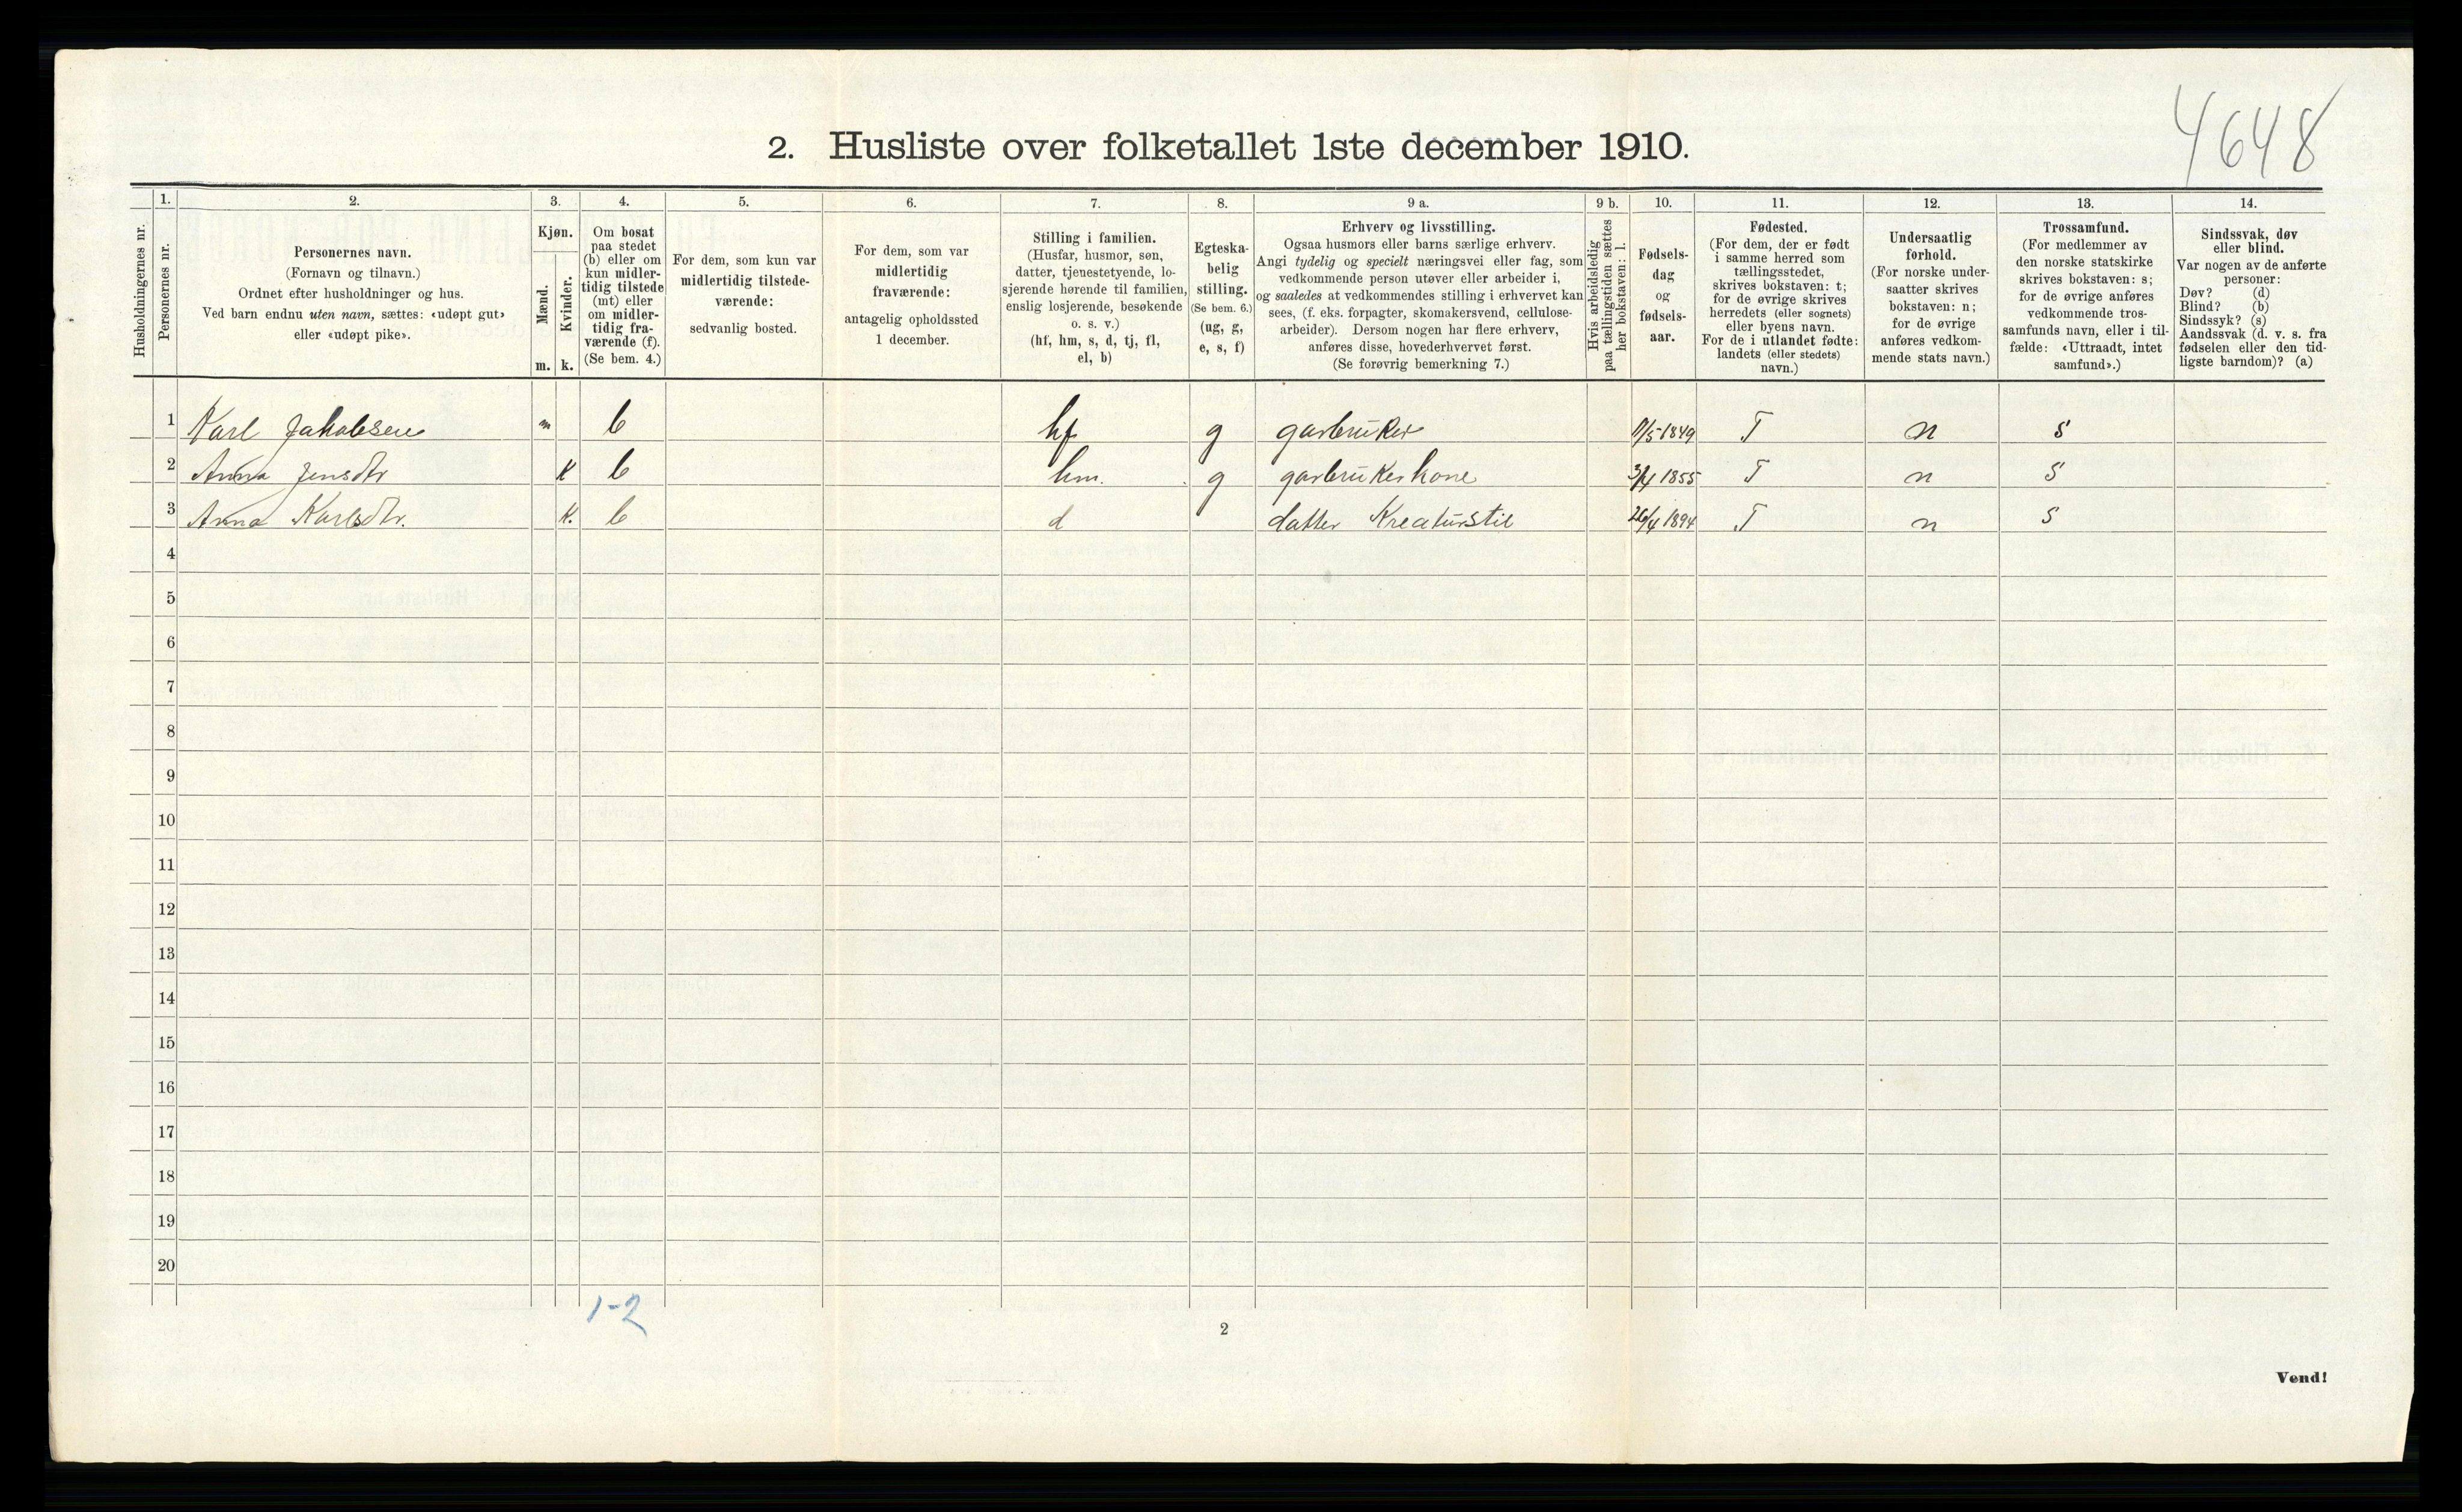 4648
2. Husliste over folketallet 1ste december 1910.
Husholdningernes nr.
1.
Personernes nr.
2.
Personernes navn.
(Fornavn og tilnavn.)
Ordnet efter husholdninger og hus.
Ved barn endnu uten navn, sættes: «udøpt gut»
eller «udøpt pike».
3.
Kjøn.
Mænd.
Kvinder.
m. k.
4.
Om bosat
paa stedet
(b) eller om
kun midler-
tidig tilstede
(mt) eller
om midler-
tidig fra-
værende (f).
(Se bem. 4.)
5.
For dem, som kun var
midlertidig tilstede-
værende:
sedvanlig bosted.
6.
For dem, som var
midlertidig
fraværende:
antagelig opholdssted
1 december.
7.
Stilling i familien.
(Husfar, husmor, søn,
datter, tjenestetyende, lo-
sjerende hørende til familien,
enslig losjerende, besøkende
o. s. v.)
(hf, hm, s, d, tj, fl,
el, b)
8.
Egteska-
belig
stilling.
(Se bem. 6.)
(ug, g,
e, s, f)
9 a.
Erhverv og livsstilling.
Ogsaa husmors eller barns særlige erhverv.
Angi tydelig og specielt næringsvei eller fag, som
vedkommende person utøver eller arbeider i,
og saaledes at vedkommendes stilling i erhvervet kan
sees, (f. eks. forpagter, skomakersvend, cellulose-
arbeider). Dersom nogen har flere erhverv,
anføres disse, hovederhvervet først.
(Se forøvrig bemerkning 7.)
9 b.
Hvis arbeidsledig
paa tællingstiden sættes
her bokstaven: l.
10.
Fødsels-
dag
og
fødsels-
aar.
11.
Fødested.
(For dem, der er født
i samme herred som
tællingsstedet,
skrives bokstaven: t;
for de øvrige skrives
herredets (eller sognets)
eller byens navn.
For de i utlandet fødte:
landets (eller stedets)
navn.)
12.
Undersaatlig
forhold.
(For norske under-
saatter skrives
bokstaven: n;
for de øvrige
anføres vedkom-
mende stats navn.)
13.
Trossamfund.
(For medlemmer av
den norske statskirke
skrives bokstaven: s;
for de øvrige anføres
vedkommende tros-
samfunds navn, eller i til-
fælde: «Uttraadt, intet
samfund».)
14.
Sindssvak, døv
eller blind.
Var nogen av de anførte
personer:
Døv? (d)
Blind? (b)
Sindssyk? (s)
Aandssvak (d. v. s. fra
fødselen eller den tid-
ligste barndom)? (a)
1 Karl Jakobsen m b hf g garbruker 1849 T n s
2 Anna Jensdtr K b hm. g garbrukerkone 1855 T n S
3 Anna Karlsdtr. K. b d datter Kreaturstil 26/4 1894 T n S
4
5
6
7
8
9
10
11
12
13
14
15
16
17
18
19
20
1-2
2
Vend!